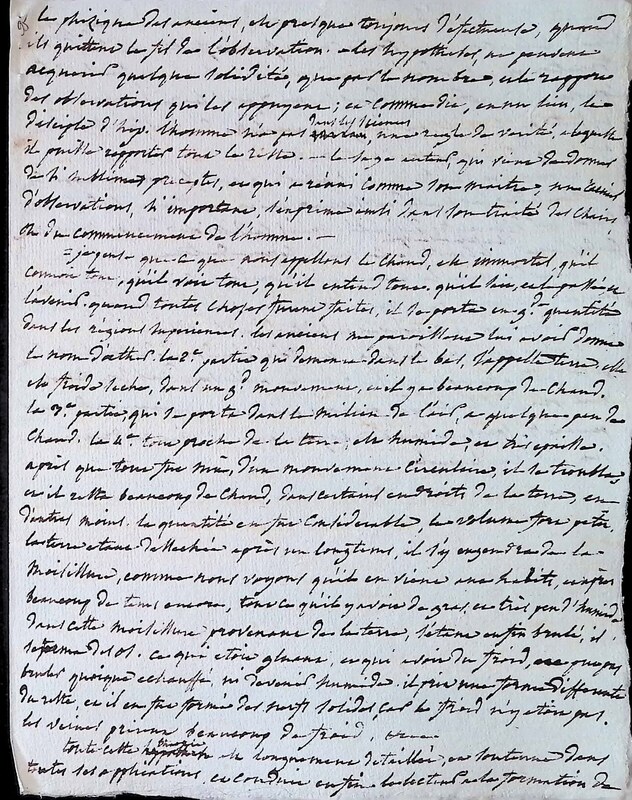 la phisique des anciens, est presque toujours défectueuse, quand
ils quittent le fil de l'observation. les hypotheses, ne peuvent
acquerir quelque solidité, que par le nombre, et le rapport
des observations qui les appuyent; et comme dit, en un lieu, le
disciple d'hip. l'homme n'a pas dans les sciences, une regle de verité, a laquelle
il puisse rapporter tout le reste. le sage auteur qui vient de donner
de si sublimes preceptes, et qui a réuni comme son maitre, une
d'observations, si important, s'exprime ainsi dans son traité des chairs,
ou du commencement de l'homme.
= je pense que ce que nous appellons le chaud, est immortel, qu'il
connoit tout, qu'il voit tout, qu'il entend tout. qu'il sçait, et le passé et
l'avenir. quand toutes choses furent faites, il se porta en gde quantité
dans les regions superieures. les anciens me paroissent lui avoir donné
le nom d'æther. la 2e partie qui demeura dans le bas, s'appelle terre. elle
est froide seche, dans un gd mouvement, et il y a beaucoup de chaud.
la 3e partie, qui se porta dans le milieu de l'air a quelque peu de
chaud. la 4e tout proche de la terre, est humide, et très epaisse.
après que tout fut mu, d'un mouvement circulaire, il se troubla,
et il resta beaucoup de chaud, dans certains endroits de la terre, en
d'autres moins. la quantité en fut considerable, le volume fort petit,
la terre etant dessechée après un longtems, il s'y engendra de la
moisissure, comme nous voyons qu'il en vient aux habits, et après
beaucoup de tems encore, tout ce qu'il y avoit de gras, et très peu d'humide
dans cette moisissure provenant de la terre, s'étant enfin brulé, il
se forma des os. ce qui etoit gluant, et qui avoit du froid,
brulé quoique echauffé, ni devenir humide. il prit une forme differente
du reste, et il en fut formé des nerfs solides, car le froid n'y etoit pas.
les veines prirent beaucoup de froid,
toute cette est longuement detaillée, et soutenue dans
toutes ses applications, et conduit enfin le lecteur a la formation de